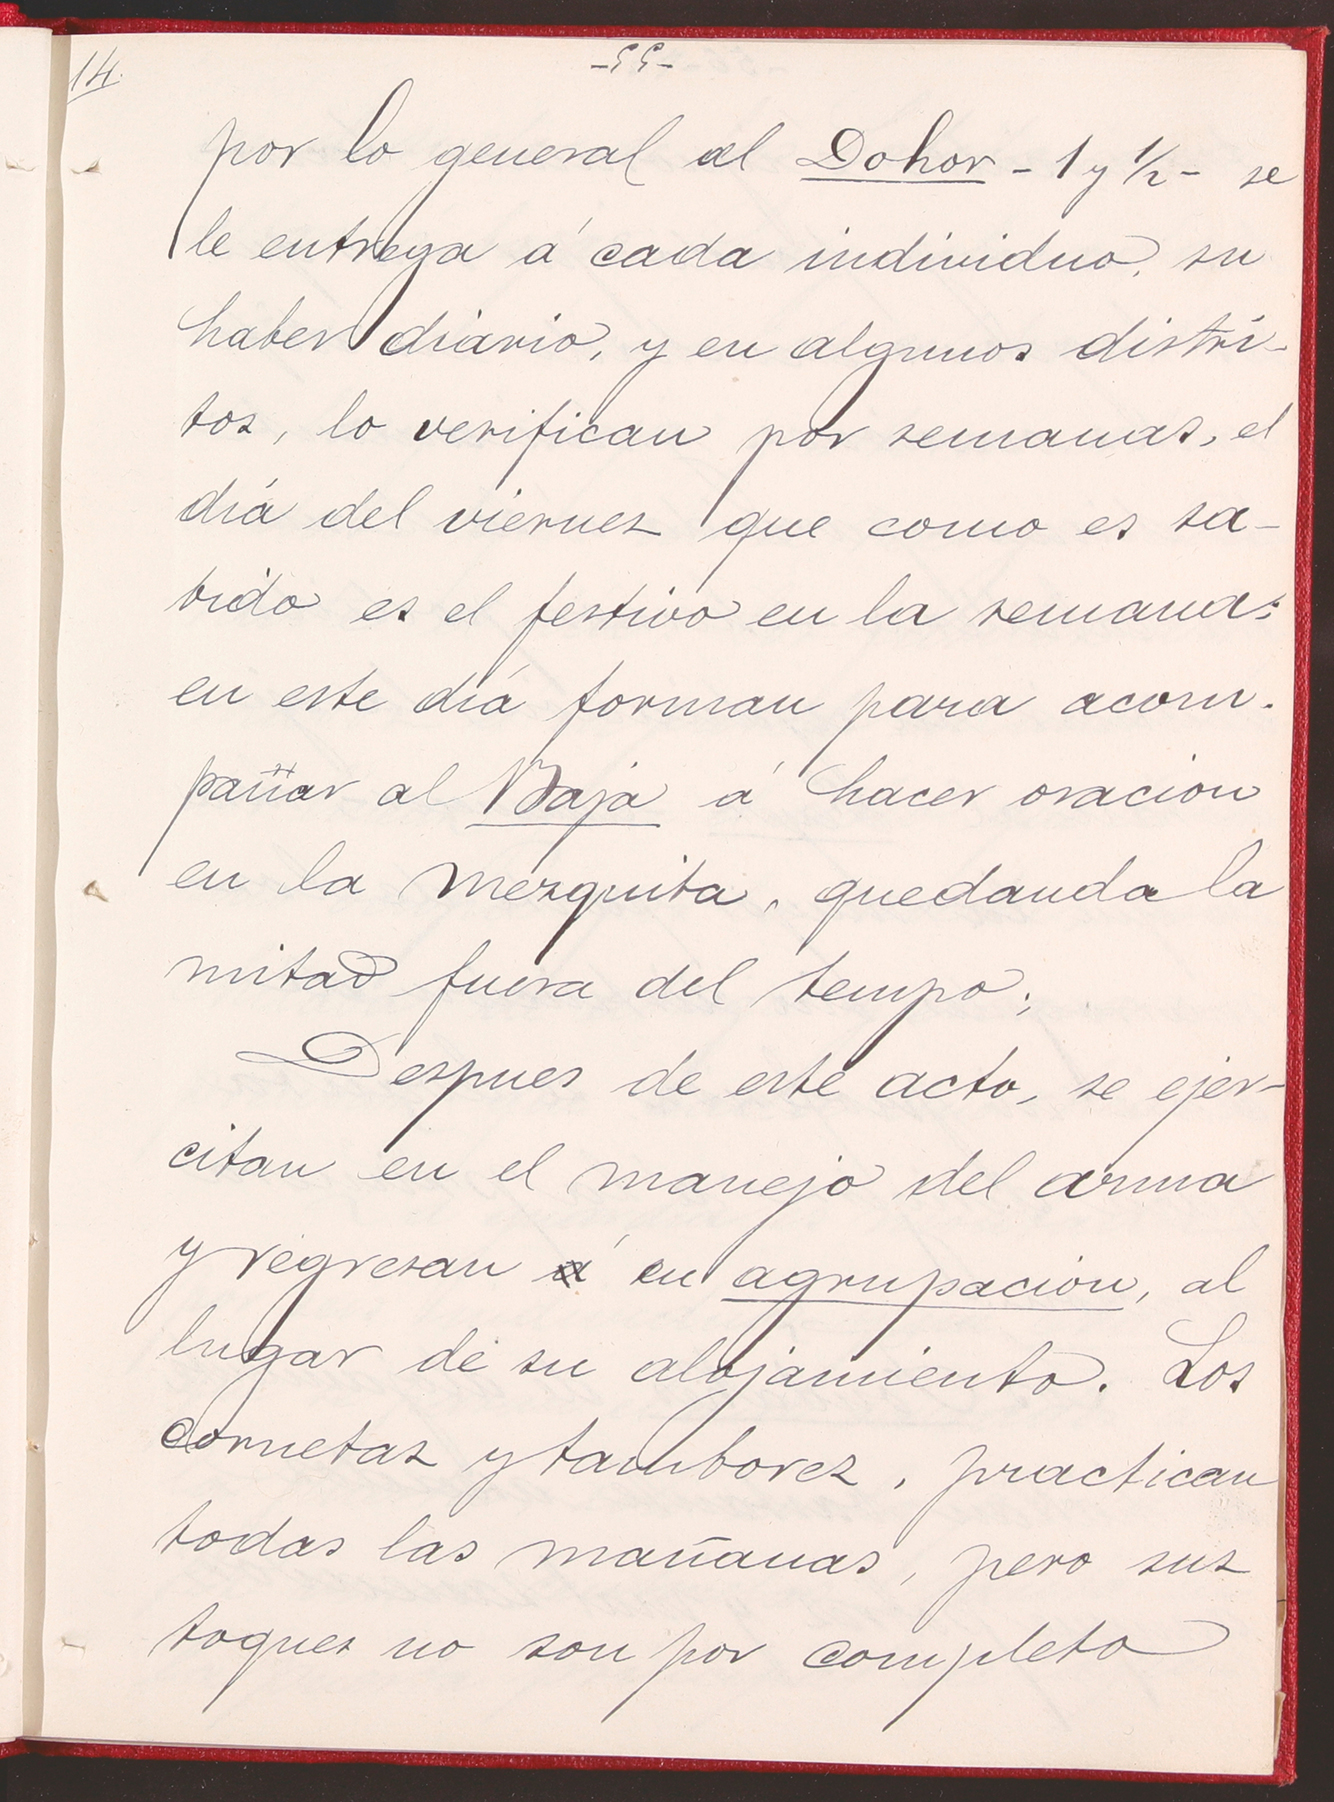 14.
-55-
por lo general al Dohor - 1 y 1/2 - se
le entrega á cada individuo, su
haber diario, y en algunos distri-
tos, lo verifican por semanas, el
día del viernes que como es sa-
bido es el festivo en la semana:
en este día forman para acom-
pañar al Bajá á hacer oración
en la mezquita, quedanda la
mitad fuera del tempo;
Despues de este acto, se ejer-
citan en el manejo del arma
y regresan á en agrupación, al
lugar de su alojamiento. Los
cornetas y tambores, practican
todas las mañanas, pero sus
toques no son por completo